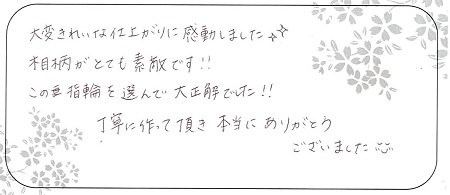 大変きれいな仕上がりに感動しました
相柄がとても素敵です!!
この 指輪を選んで大正解でした!!
丁寧に作って頂き本当にありがとう
ございました